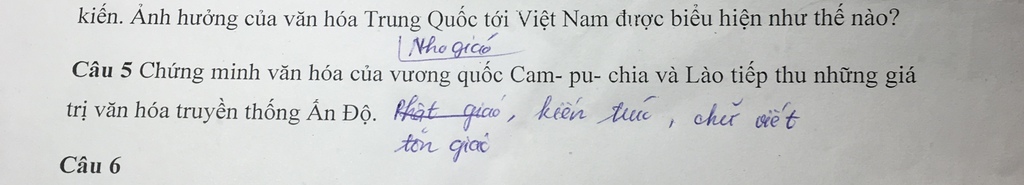 kiến. Ảnh hưởng của văn hóa Trung Quốc tới Việt Nam được biểu hiện như thế nào?
Nho giáo
Câu 5 Chứng minh văn hóa của vương quốc Cam- pu- chia và Lào tiếp thu những giá
trị văn hóa truyền thống Ấn Độ. Phật giáo, kiến trúc, chữ viết
tôn giáo
Câu 6